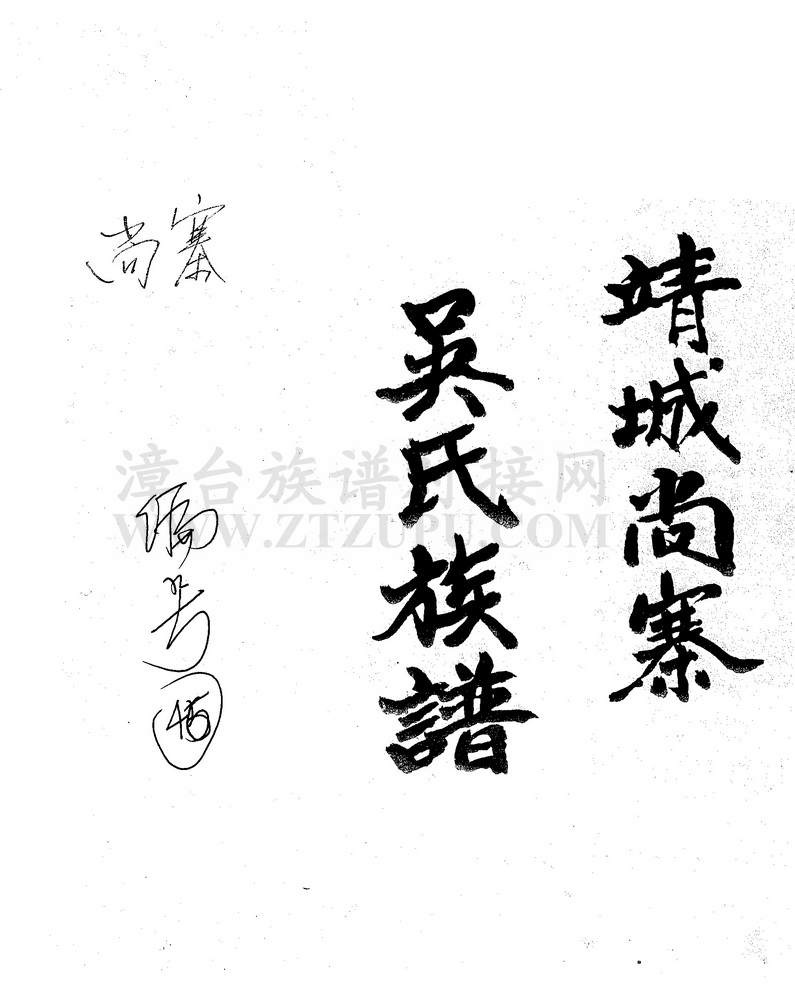 靖城尚寨
吳氏族譜
尚寨
编号
45
漳台族谱对接网
WWW.ZTZUPU.COM